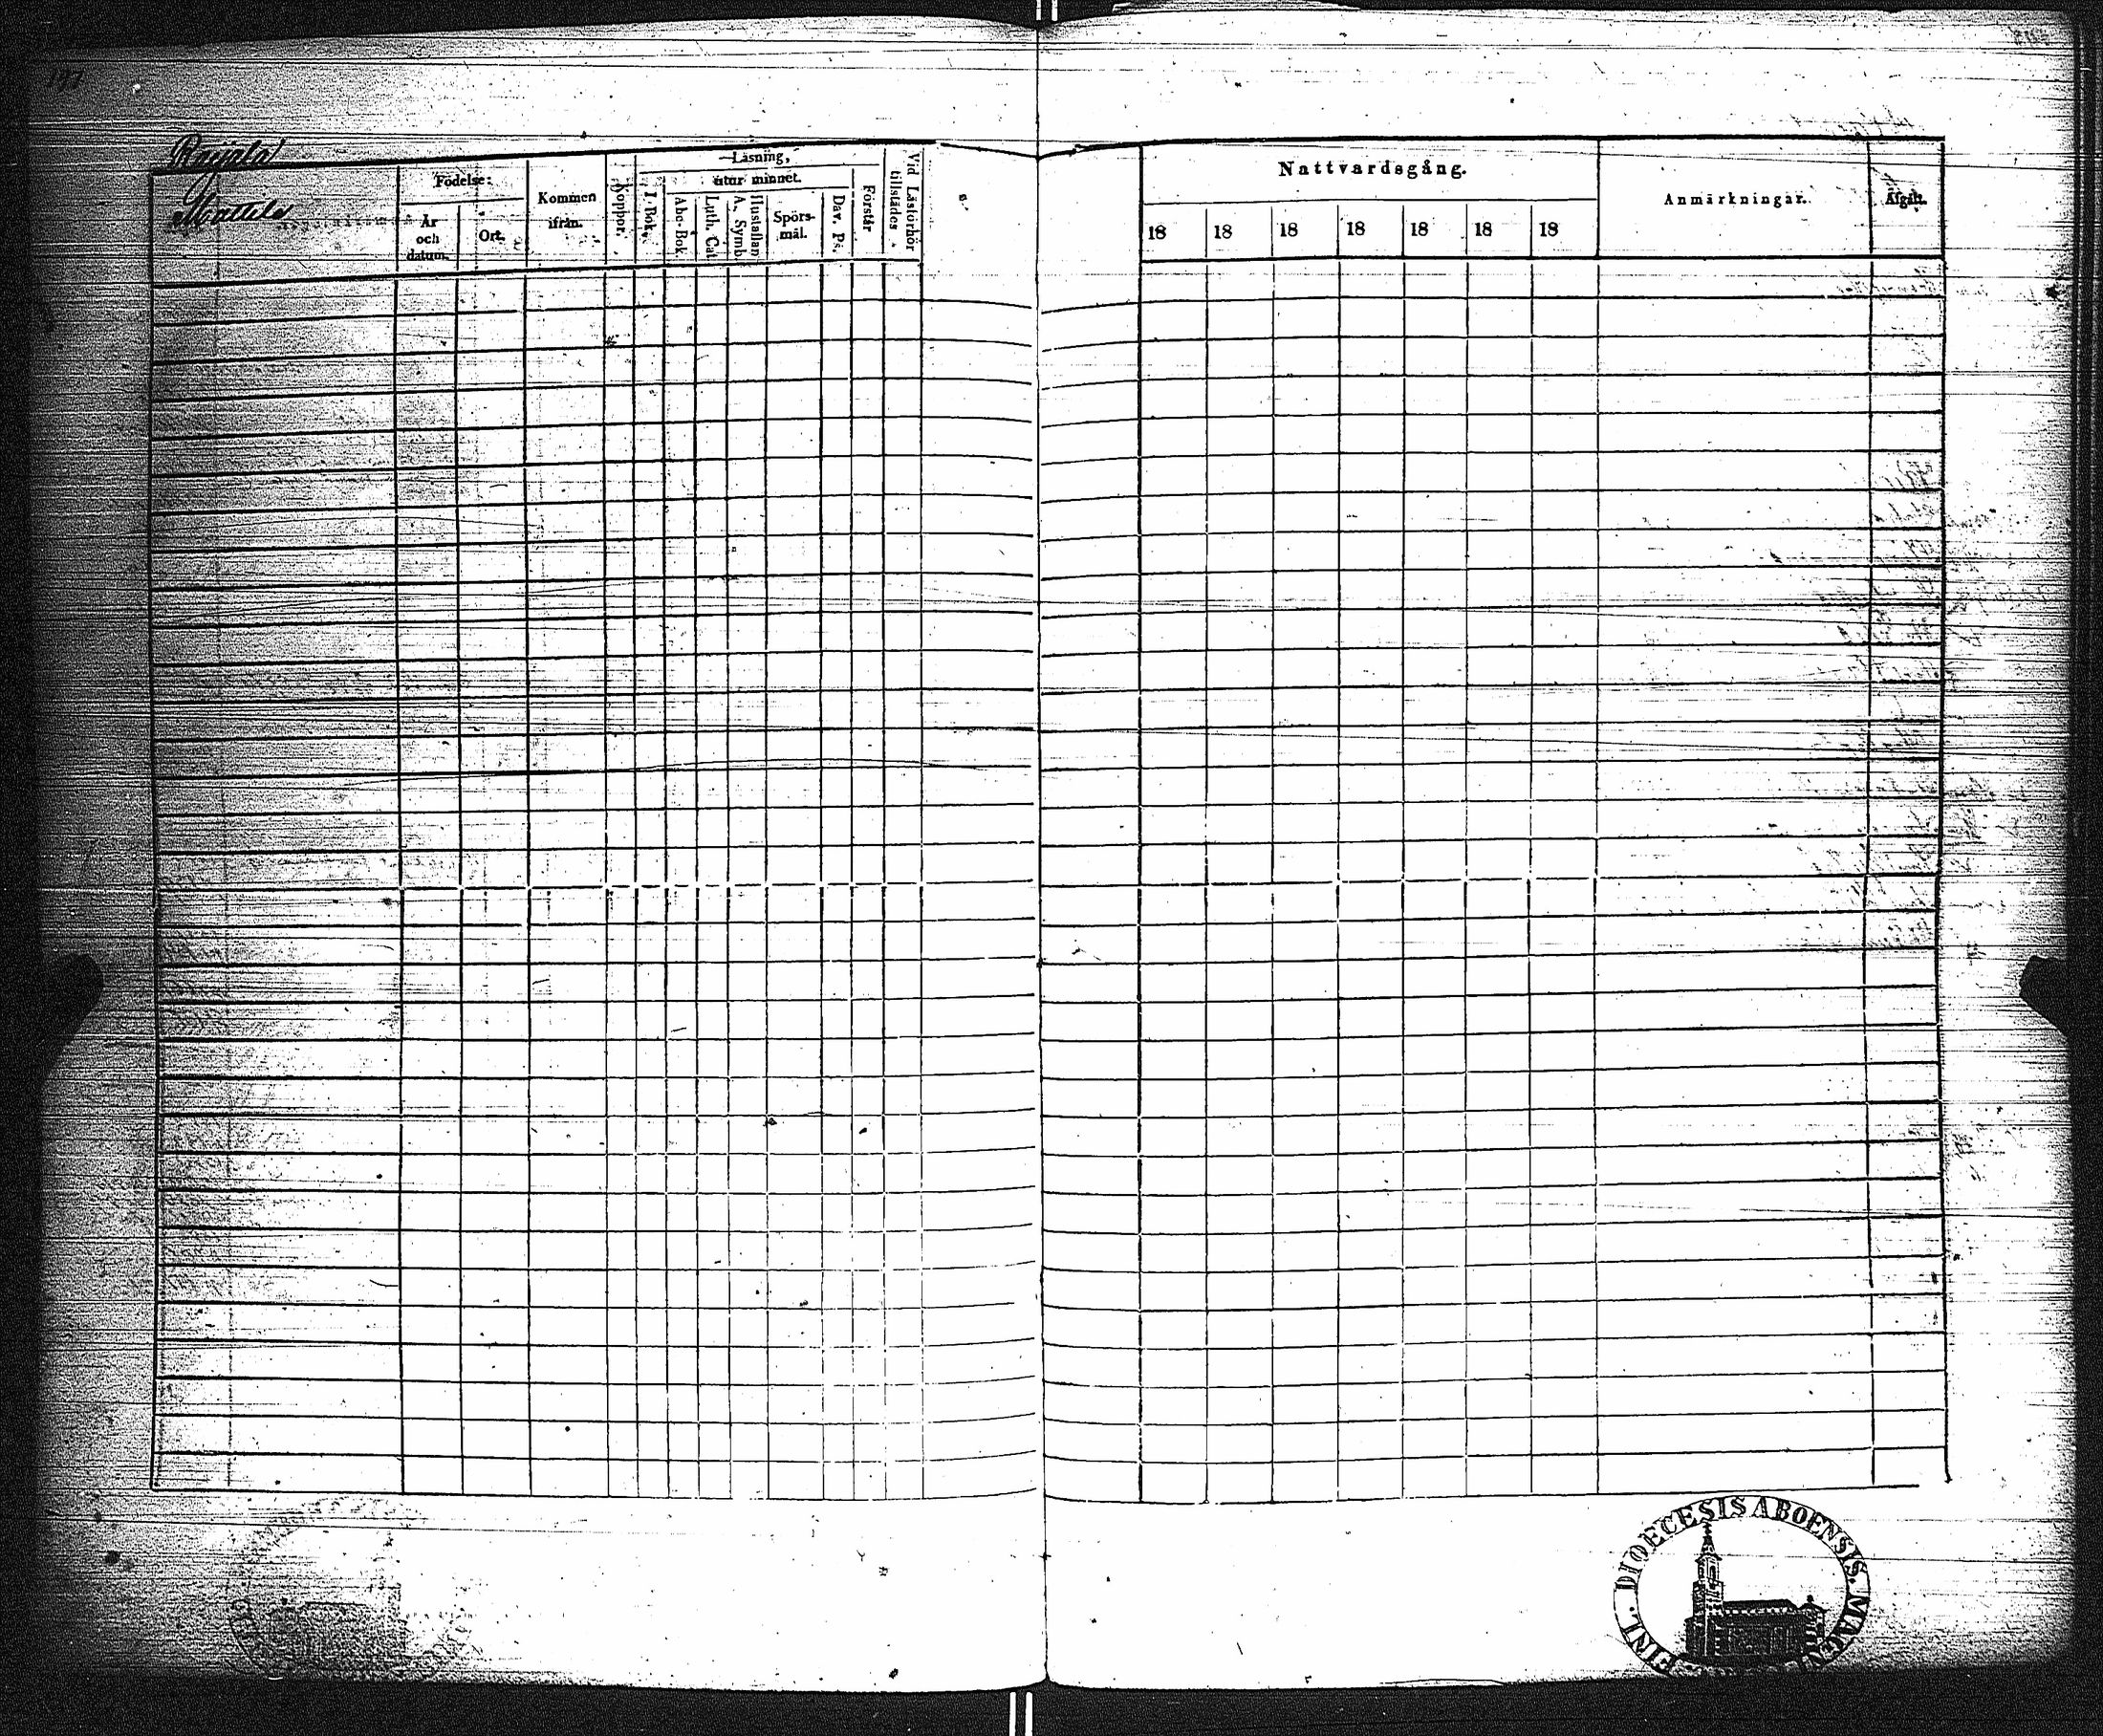 197
Rajjala
Mattila
Födelse:
År och datum.
Ort.
Kommen ifrån.
Koppor.
Läsning,
I Bok.
utur minnet.
Abc-Bok.
Luth. Cat
A. Symb.
Hustaflan
Spörsmål.
Dav. Ps.
Förstår
Vid Läsförhör tillstädes
Nattvardsgång.
18 18 18 18 18 18 18
Anmärkningar.
Afgått.
FINL. DIOECESIS ABOENSIS. MAGN